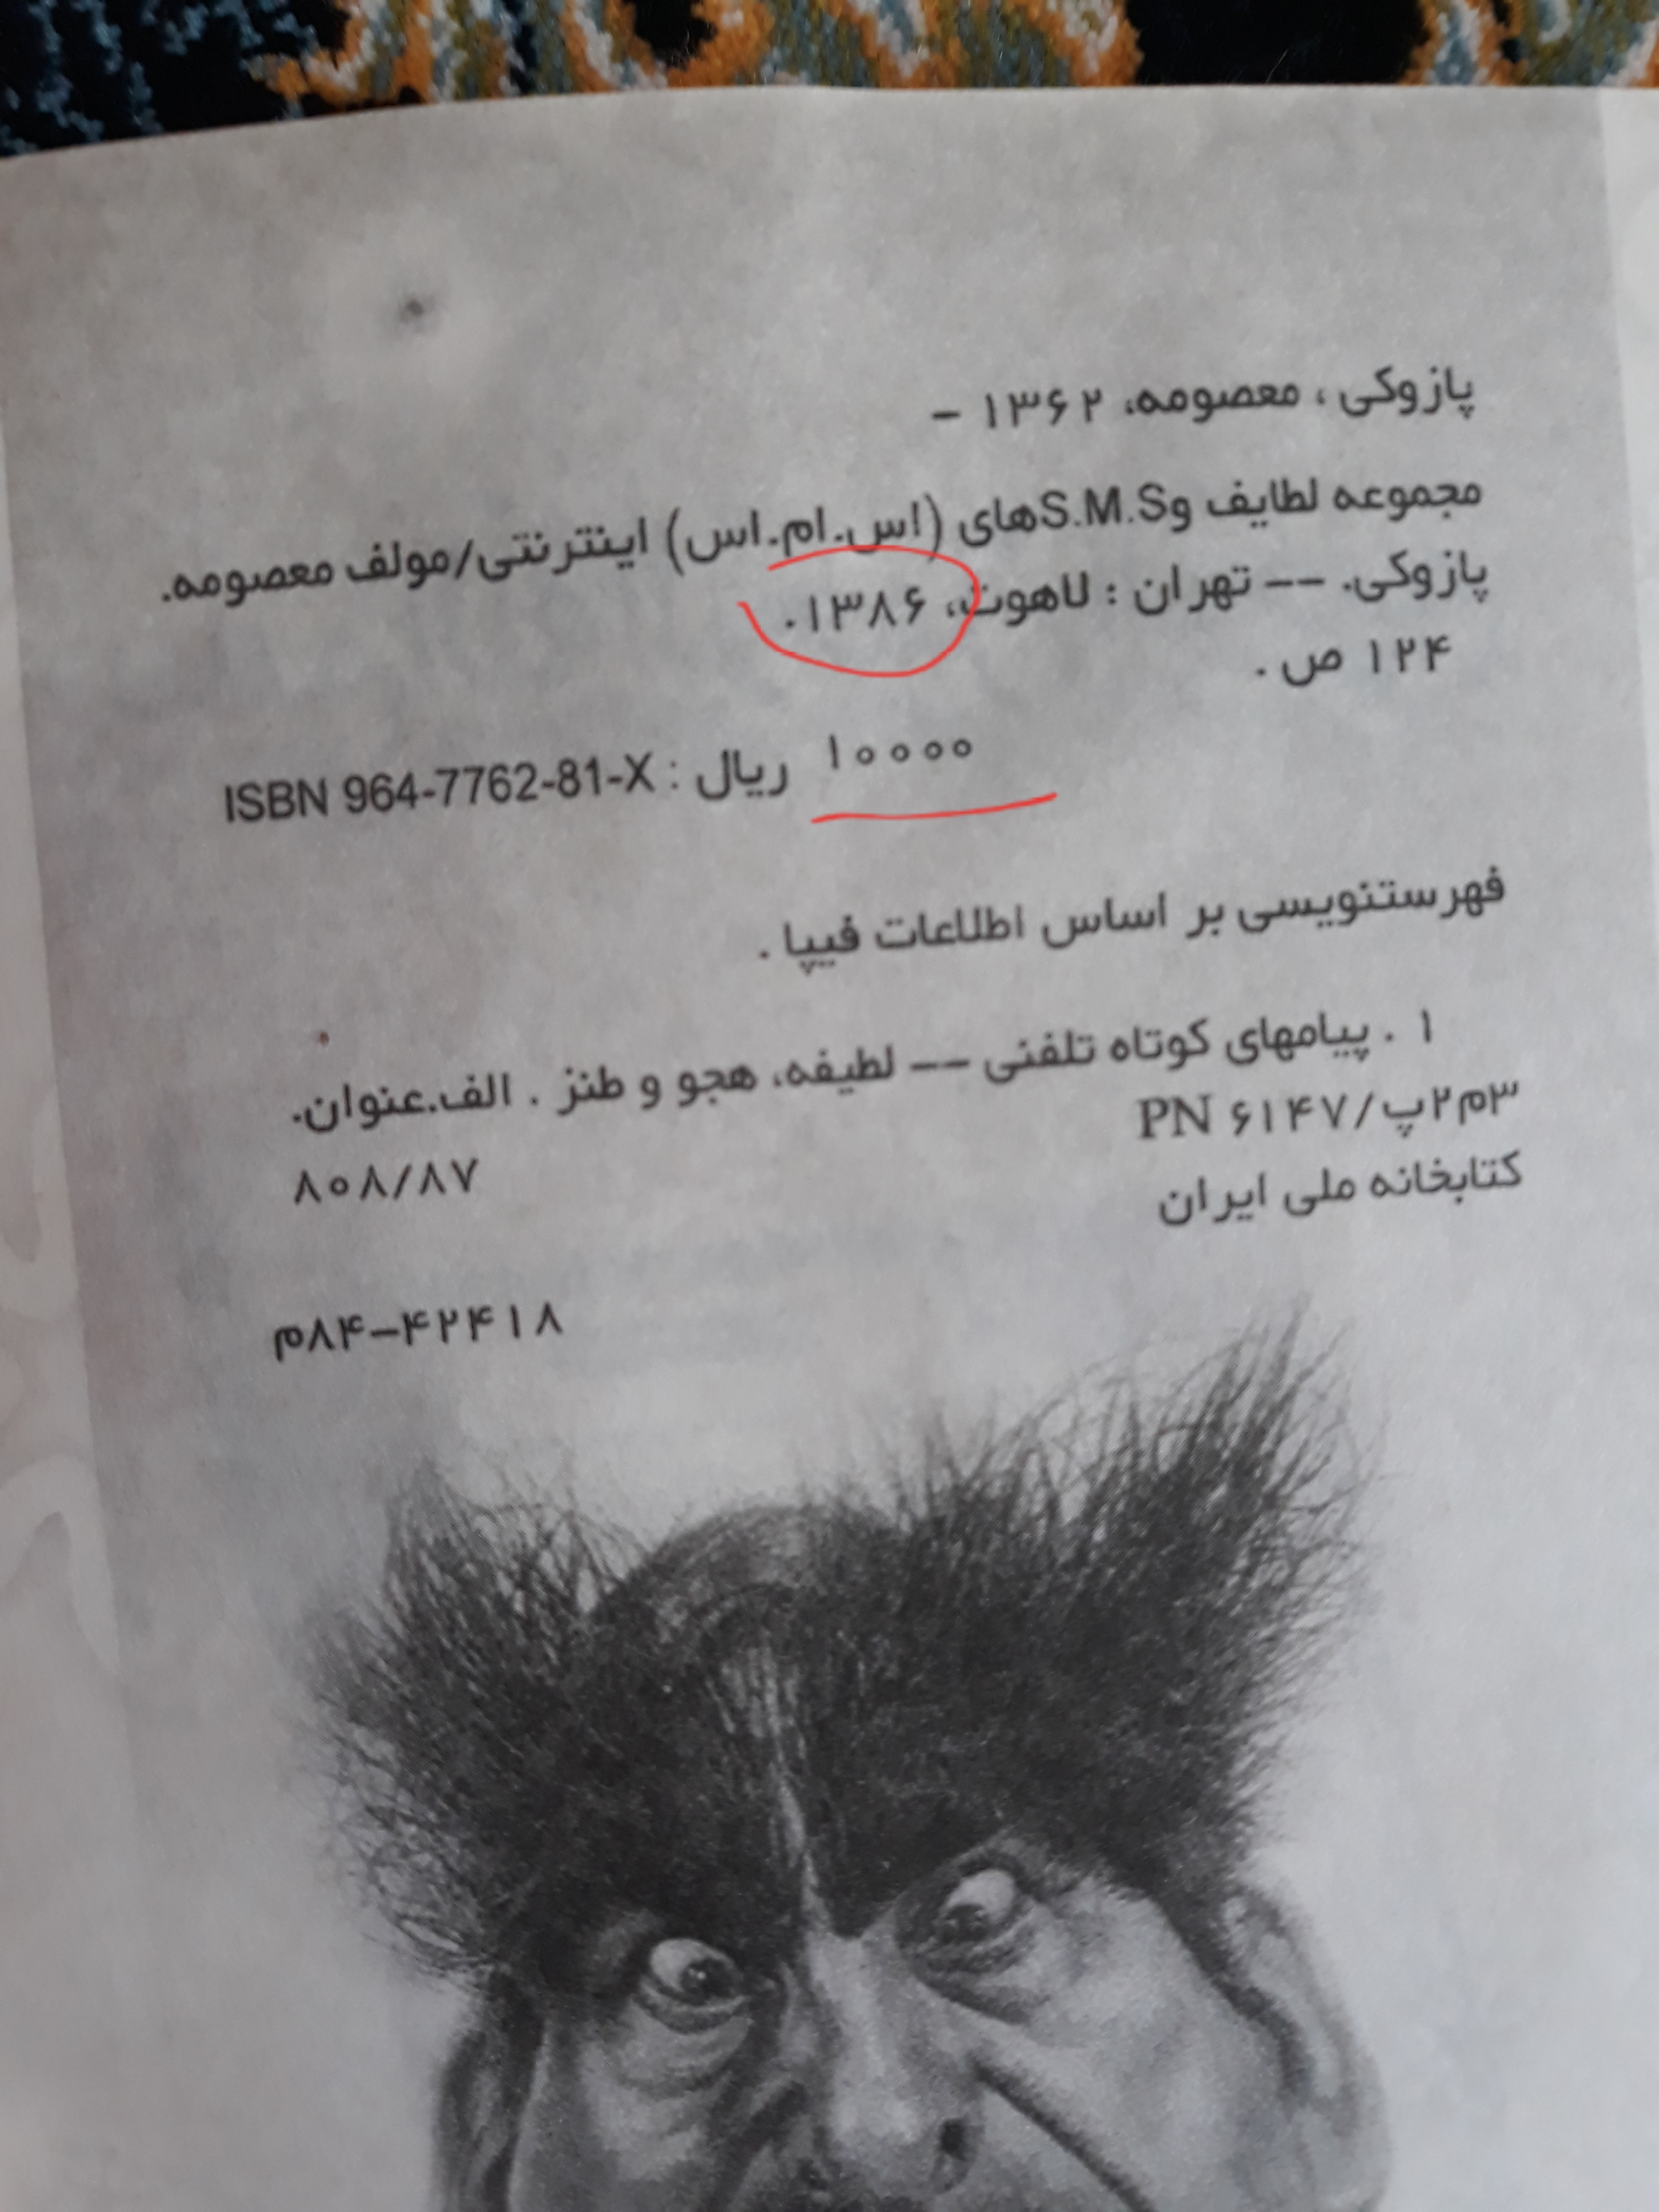 پازوکی ، معصومه، ۱۳۶۲ –
مجموعه لطایف وS.M.Sهای (اس.ام.اس) اینترنتی/مولف معصومه.
پازوکی. -- تهران : لاهوت، ۱۳۸۶.
۱۲۴ ص .
۱۰۰۰۰ ریال : ISBN 964-7762-81-X
فهرستنویسی بر اساس اطلاعات فیپا .
۱ . پیامهای کوتاه تلفنی -- لطیفه، هجو و طنز . الف.عنوان.
۳م۲پ/۶۱۴۷ PN
۸۰۸/۸۷
کتابخانه ملی ایران
۴۲۴۱۸–۸۴م